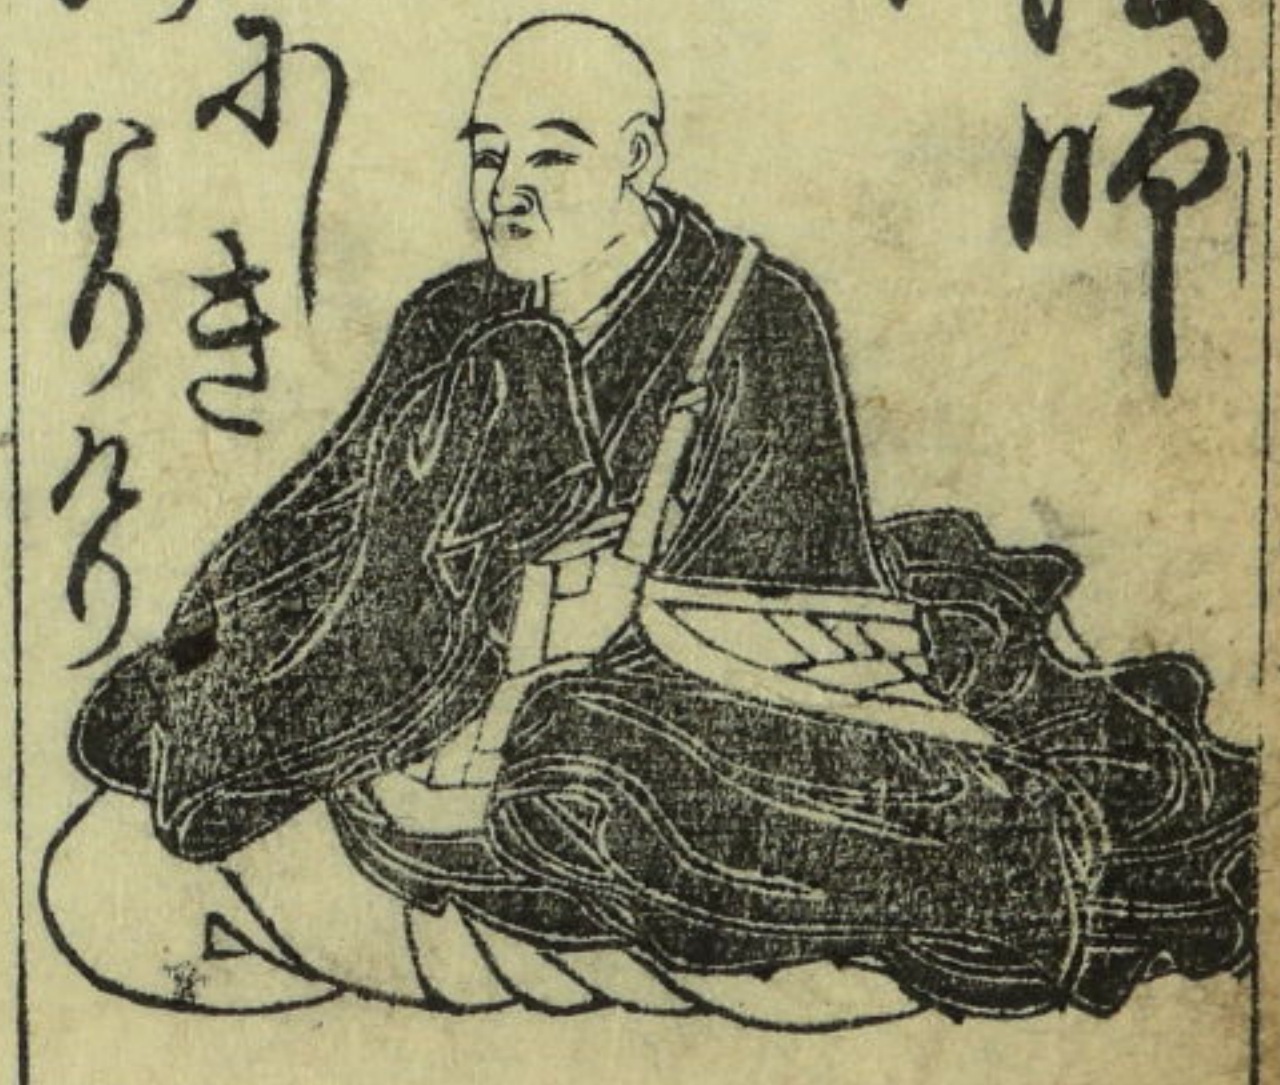 法師
にしき
なりけり